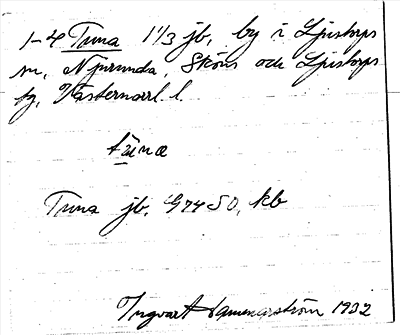 1-4 Tuna 1 1/3 jb, by i Ljustorps
sn, Njurunda, Sköns och Ljustorps
tg, Västernorrl. l.
tùna
Tuna jb, G 74 SO, kb
Ingvar 1932